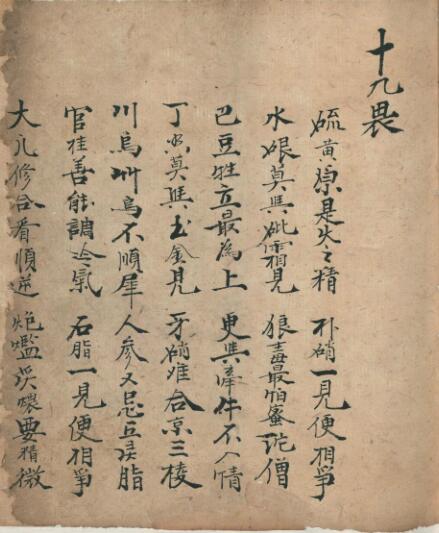 十九畏
硫黄原是火之精 朴硝一見便相爭
水銀莫與砒霜見 狼毒最怕蜜陀僧
巴豆牲立最為上 更與牽件不人情
丁香莫與玉金見 牙硝难合京三棱
川烏艸烏不順犀 人參又忌五灵脂
官桂善能調冷氣 石脂一見便相爭
大凡修合看順逆 炮爁要精微